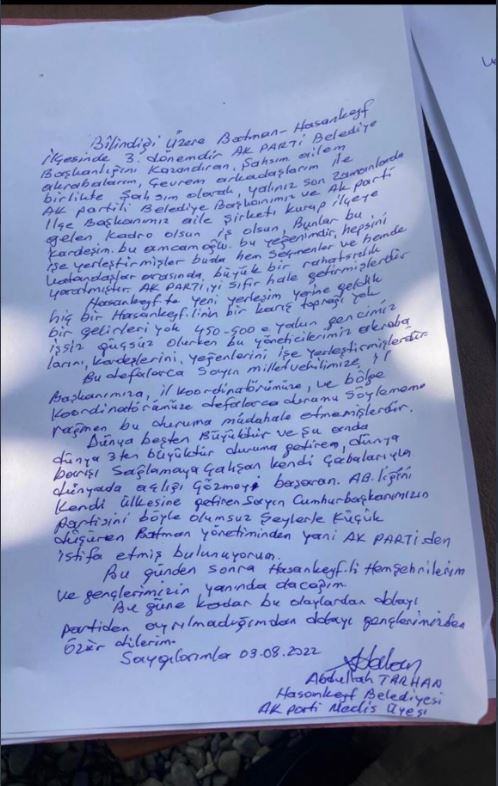 Bilindiği Üzere Batman-Hasankeyf
ilçesinde 3. dönemdir AK PARTİ Belediye
Başkanlığını Kazandıran, Şahsım ailem
akrabalarım, Çevrem arkadaşlarım ile
birlikte Şahsım olarak, yalnız son zamanlarda
AK partili Belediye Başkanımız ve AK parti
İlçe Başkanımız aile şirketi kurup ilçeye
gelen kadro olsun iş olsun, Bunlar bu
kardeşim. bu amcamoğlu. bu yeğenimdir, hepsini
işe yerleştirmişler buda hem Seçmenler ve hemde
vatandaşlar arasında büyük bir rahatsızlık
yaratmıştır. AK PARTİ,yi sıfır hale getirmişlerdir
Hasankeyf.te yeni yerleşim yerine geldik
hiç bir Hasankeyf.linin bir karış toprağı yok
bir gelirleri yok 450-500 e yakın gencimiz
işsiz güçsüz olurken bu yöneticilerimiz akraba
larını, kardeşlerini, yeğenlerini işe yerleştirmişlerdir.
Bu defalarca Sayın milletvekilimize, il
Başkanımıza, il koordinatörünüze, ve bölge
Koordinatörünüze defalarca durumu Söylememe
rağmen bu duruma müdahale etmemişlerdir.
Dünya beşten Büyüktür ve şu anda
dünya 3ten büyüktür duruma getiren, dünya
barışı Sağlamaya Çalışan kendi Çabalarıyla
dünyada açlığı Çözmeyi başaran. AB.liğini
Kendi ülkesine getiren Sayın Cumhurbaşkanımızın
partisini böyle olumsuz Şeylerle Küçük
düşüren Batman yönetiminden yani AK PARTİ.den
istifa etmiş bulunuyorum.
Bu günden sonra Hasankeyf.li Hemşehrilerim
ve gençlerimizin yanında olacağım.
Bu güne kadar bu olaylardan dolayı
partiden ayrılmadığımdan dolayı gençlerimizden
özür dilerim.
Saygılarımla 03.08.2022
Abdullah TARHAN
Hasankeyf Belediyesi
AK parti Meclis Üyesi